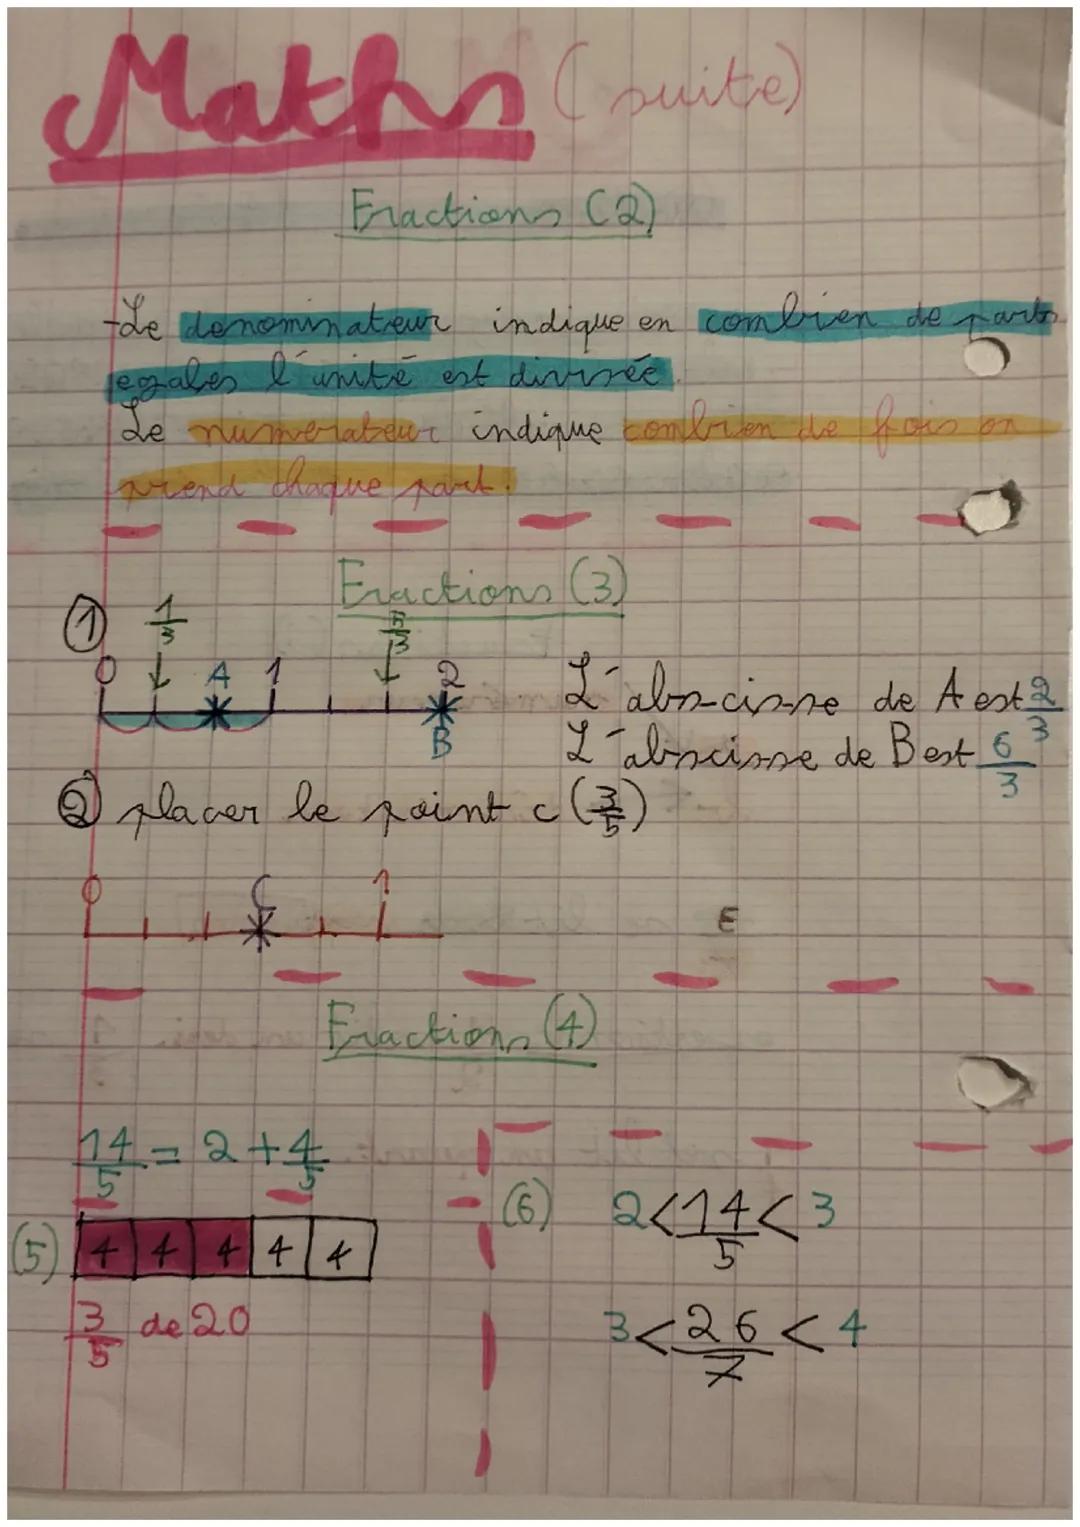 Maths (suite)
Fractions (2)
-Le denominateur indique en combien de parts
egales l'unité est divisée.
Le numerateur indique combien de fois on
prend chaque part.
Fractions (3)
① 1/3
0 A 1 2
B
L'abs-cis-se de A est 2/3
L'abscisse de B est 6/3
② placer le point c (3/5)
0 C 1
E
Fractions (4)
14/5 = 2 + 4/5
(5) 4 4 4 4 4
3/5 de 20
(6) 2 < 14/5 < 3
3 < 26/7 < 4